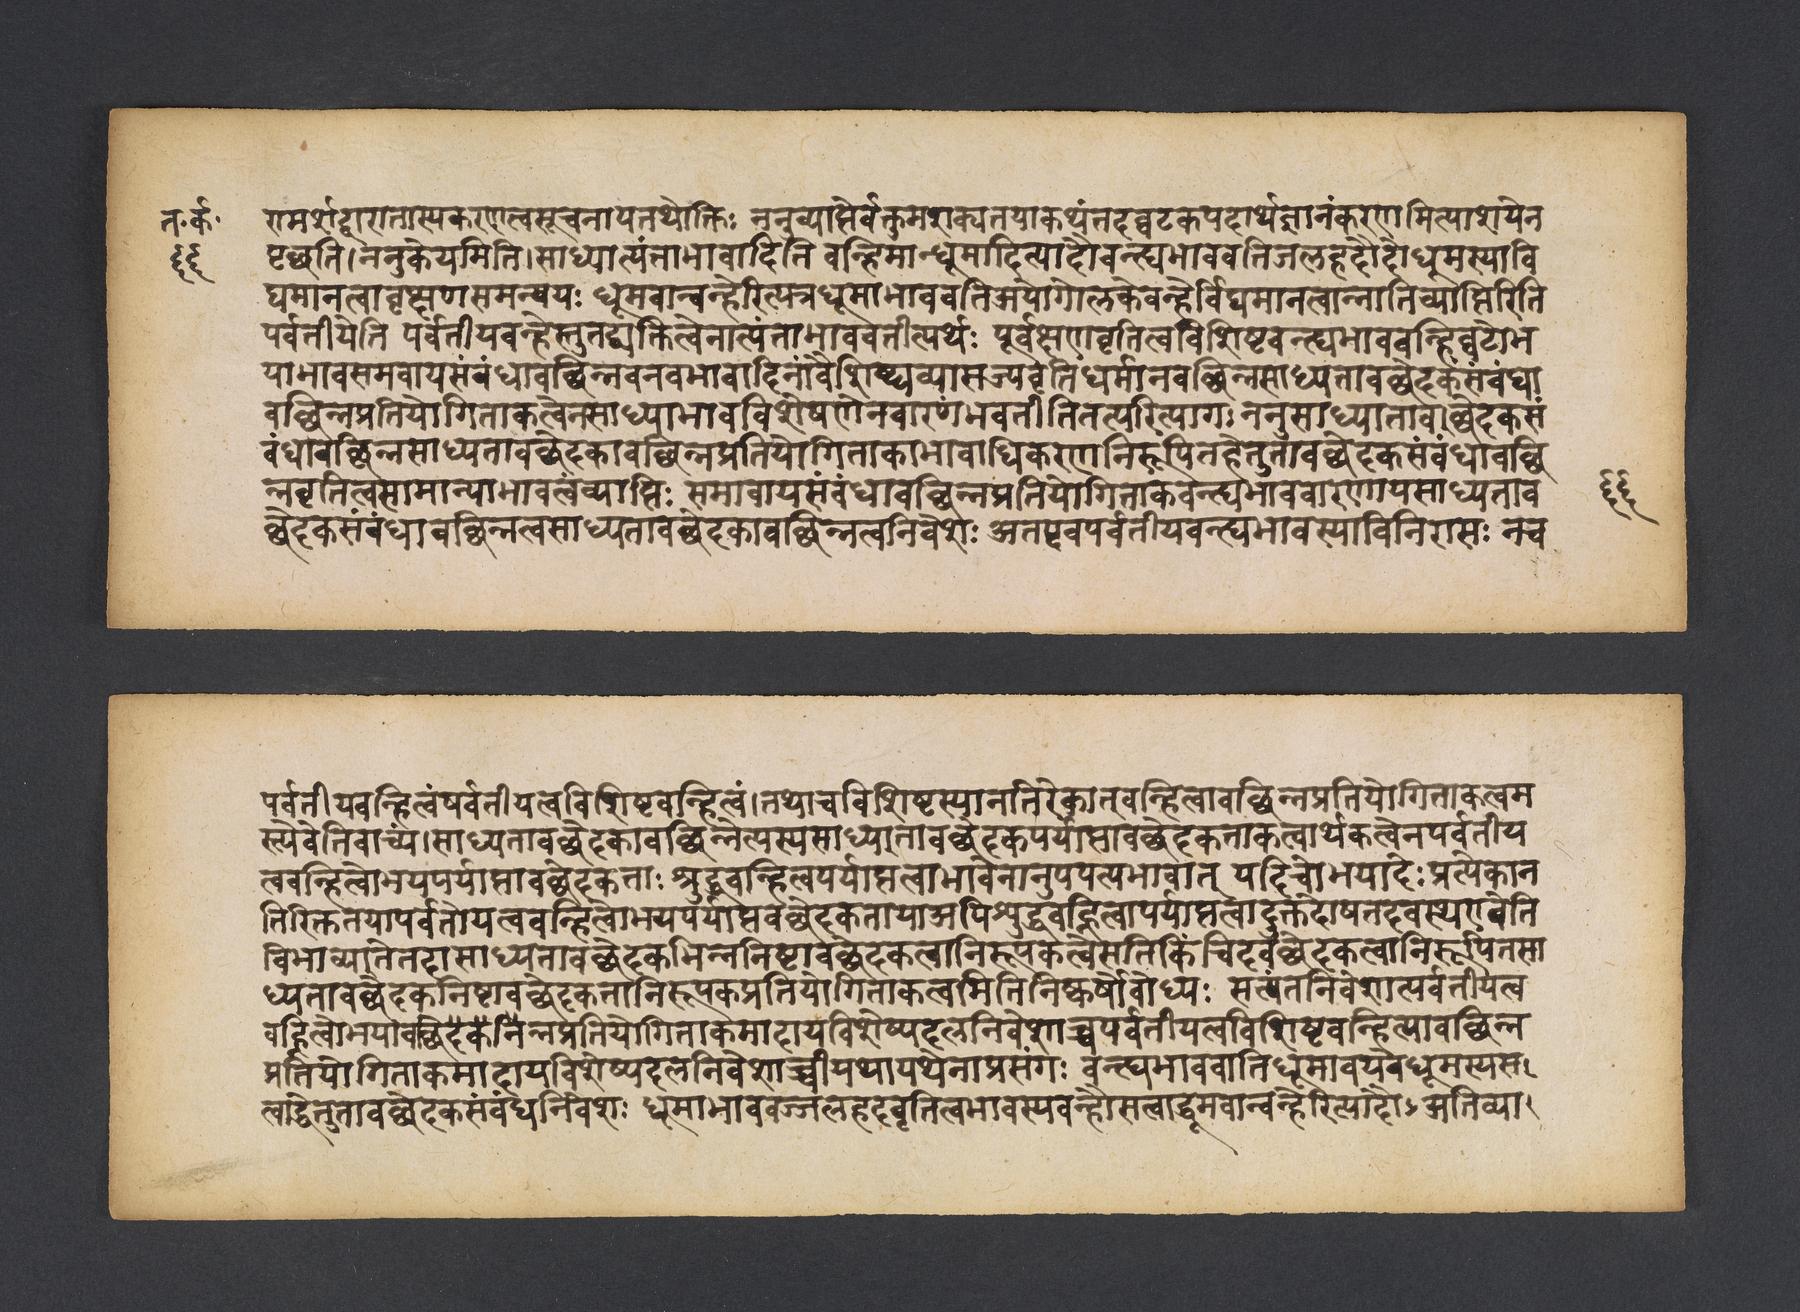 त॰र्क॰
६६
रामर्शद्वारातास्यकरणत्वसूचनायतथोक्तिः ननुव्याप्तेर्वक्तुमशक्यतयाकथंतद्घटकपदार्थज्ञानंकरणमित्याशयेन
पृच्छति।ननुकेयमिति।साध्यात्यंताभावादिति वन्हिमान्धूमादित्यादौवन्ह्यभाववतिजलह्रदौदौधूमस्यावि
द्यमानत्वावृक्षणसमन्वयः धूमवान्वन्हेरित्यत्रधूमाभाववतिअयोगोलकेवन्हेर्विद्यमानत्वान्नातिव्याप्तिरिति
पर्वतीयेति पर्वतीयवन्हेस्तुतद्व्यक्तित्वेनात्यंताभाववतीत्यर्थः पूर्वक्षणवृत्तित्वविशिष्टवन्ह्यभाववन्हिघटोभ
याभावसमवायसंबंधावछिन्नवनवभावादिनांवैशिष्ट्यव्यासज्यवृत्तिधर्मानवछिन्नसाध्यतावछेदकसंबंधा
वछिन्नप्रतियोगिताकत्वेनसाध्याभावविशेषणेनवारणंभवतीतितत्परित्यागः ननुसाध्यातावछेदकसं
बंधावछिन्नसाध्यतावछेदकावछिन्नप्रतियोगिताकाभावाधिकरणनिरूपितहेतुतावछेदकसंबंधावछि
न्नवृत्तित्वसामान्याभावत्वंव्याप्तिः समावायसंबंधावछिन्नप्रतियोगिताकवन्ह्यभाववारणायसाध्यताव
छेदकसंबंधावछिन्नत्वसाध्यतावछेदकावछिन्नत्वनिवेशः अतएवपर्वतीयवन्ह्यभावस्याविनिरासः नच
६६
पर्वतीयवन्हित्वंपर्वतीयत्वविशिष्टवन्हित्वं।तथाचविशिष्टस्यानतिरेकात्वन्हित्वावछिन्नप्रतियोगिताकत्वम
स्त्येवेतिवाच्यं।साध्यतावछेदकावछिन्नेत्यस्यसाध्यातावछेदकपर्याप्तावछेदकताकत्वार्थकत्वेनपर्वतीय
त्ववन्हित्वोभयपर्याप्तावछेदकताः शुद्धवन्हित्वपर्याप्तत्वाभावेनानुपपत्यभावात् यदिचोभयादेः प्रत्येकान
तिरिक्ततयापर्वतोयत्ववन्हित्वोभयपर्याप्तवछेदकतायाअपिशुद्धवह्नित्वापर्याप्तत्वादुक्तदोषतदवस्थएवेति
विभाव्यतेतदासाध्यतावछेदकभिन्ननिष्टावछेदकत्वानिरूपकत्वेसतिकिंचिदवछेदकत्वानिरूपितसा
ध्यतावछेदकनिष्टावछेदकतानिरूपकप्रतियोगिताकत्वमितिनिष्कर्षोबोध्यः सत्यंतनिवेशात्पर्वतीयत्व
वह्नित्वोभयावछिदकनिन्नप्रतियोगिताकमादायविशेष्यदलनिवेशाच्चपर्वतीयत्वविशिष्टवन्हित्यावछिन्न
प्रतियोगिताकमादायविशेष्यदलनिवेशाच्चीयथायथेनाप्रसंगः वन्ह्यभाववातिधूमावयवेधूमस्यस
त्वाद्धेतुतावछेदकसंबंधनिवेशः धूमाभाववज्जलह्रदवृत्तित्वभावस्यवन्हौसत्वाद्धूमवान्वन्हेरित्यादौऽअतिव्या